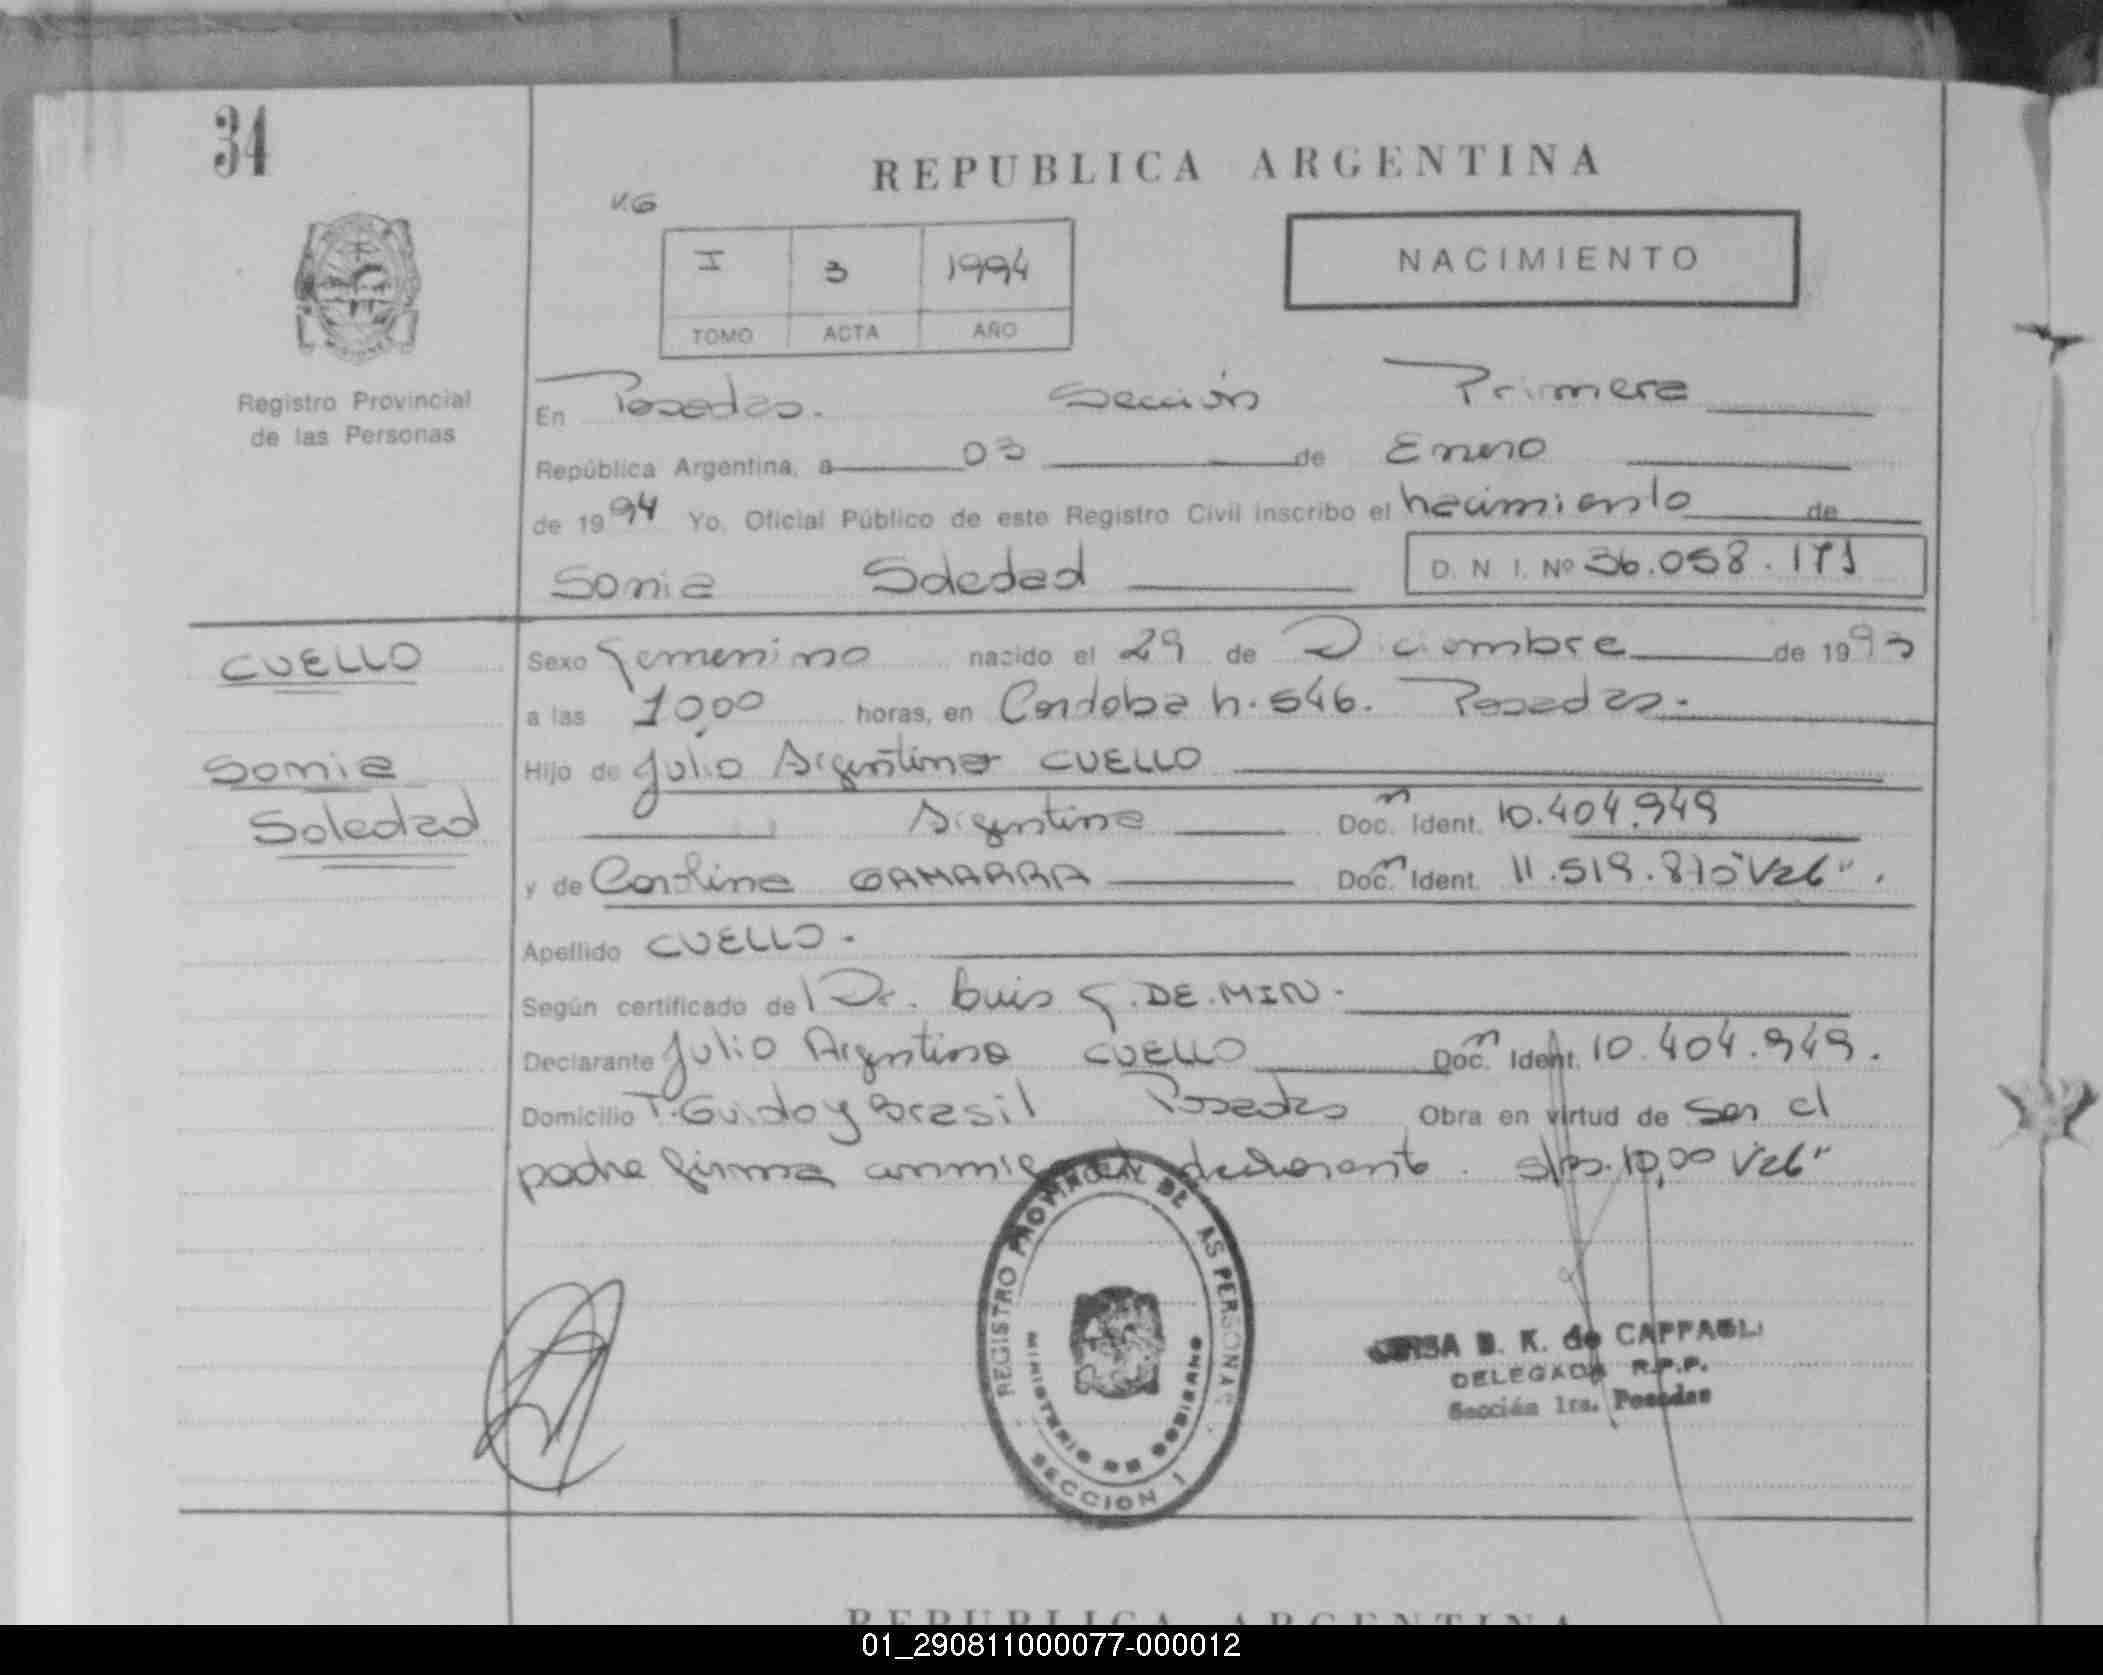 34
REPUBLICA ARGENTINA
V.G
I 3 1994
TOMO ACTA AÑO
NACIMIENTO
MISIONES
Registro Provincial
de las Personas
En Posadas. Sección Primera
República Argentina, a 03 de Enero
de 1994 Yo, Oficial Público de este Registro Civil inscribo el nacimiento de
Sonia Soledad D. N I. Nº 36.058.171
CUELLO
Sonia
Soledad
Sexo femenino nacido el 29 de Diciembre de 1993
a las 10,00 horas, en Cordoba n. 546. Posadas.
Hijo de Julio Argentino CUELLO
Argentina Doc. Ident. 10.404.949
y de GAMARRA Doc. Ident. 11.519.815 "Vale".
Apellido CUELLO.
Según certificado de Dr. Luis G. DE.MIN.
Declarante Julio Argentino CUELLO Doc. Ident. 10.404.949.
Domicilio T. Guido y Brasil Posadas Obra en virtud de ser el
padre firma conmigo el declarante. 10,00 Vale"
REGISTRO PROVINCIAL DE LAS PERSONAS
MINISTERIO DE GOBIERNO
SECCION 1
B. K. de CAPPAGLI
DELEGADA R.P.P.
Sección 1ra. Posadas
REPUBLICA ARGENTINA
01_290811000077-000012